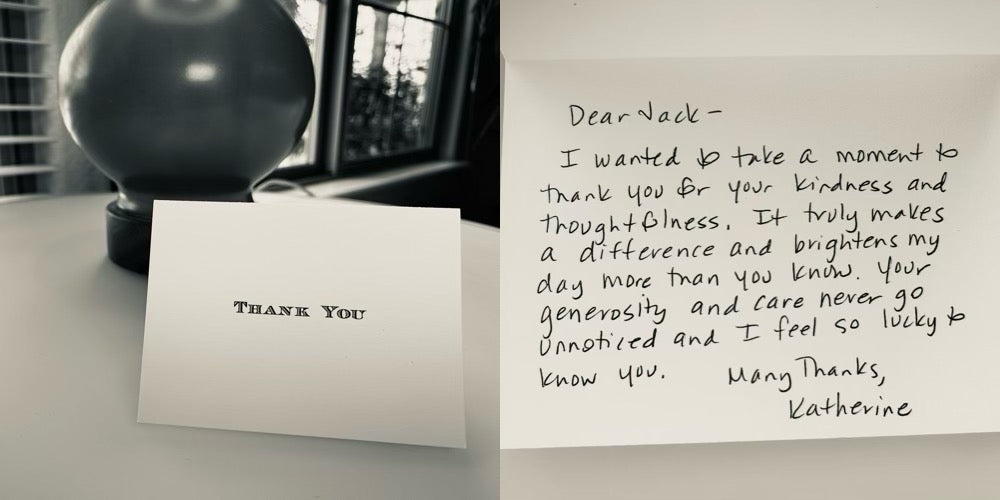 THANK YOU
Dear Jack –
I wanted to take a moment to
thank you for your kindness and
thoughtfulness. It truly makes
a difference and brightens my
day more than you know. Your
generosity and care never go
unnoticed and I feel so lucky to
know you.
Many Thanks,
Katherine